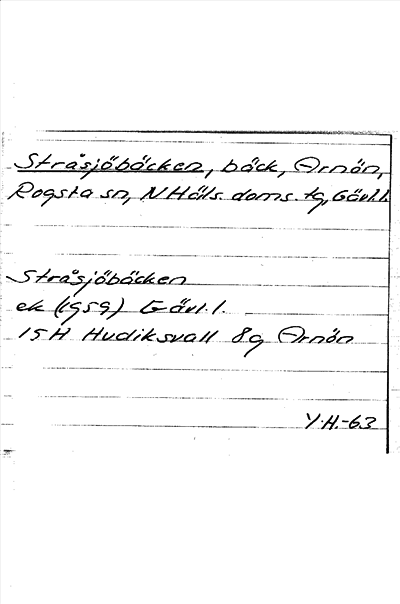 Stråsjöbäcken, bäck, Arnön,
Rogsta sn, N Häls. doms. tg, Gävl.l.
Stråsjöbäcken
ek (1959) Gävl.l.
15H Hudiksvall 8g Arnön
Y.H.-63